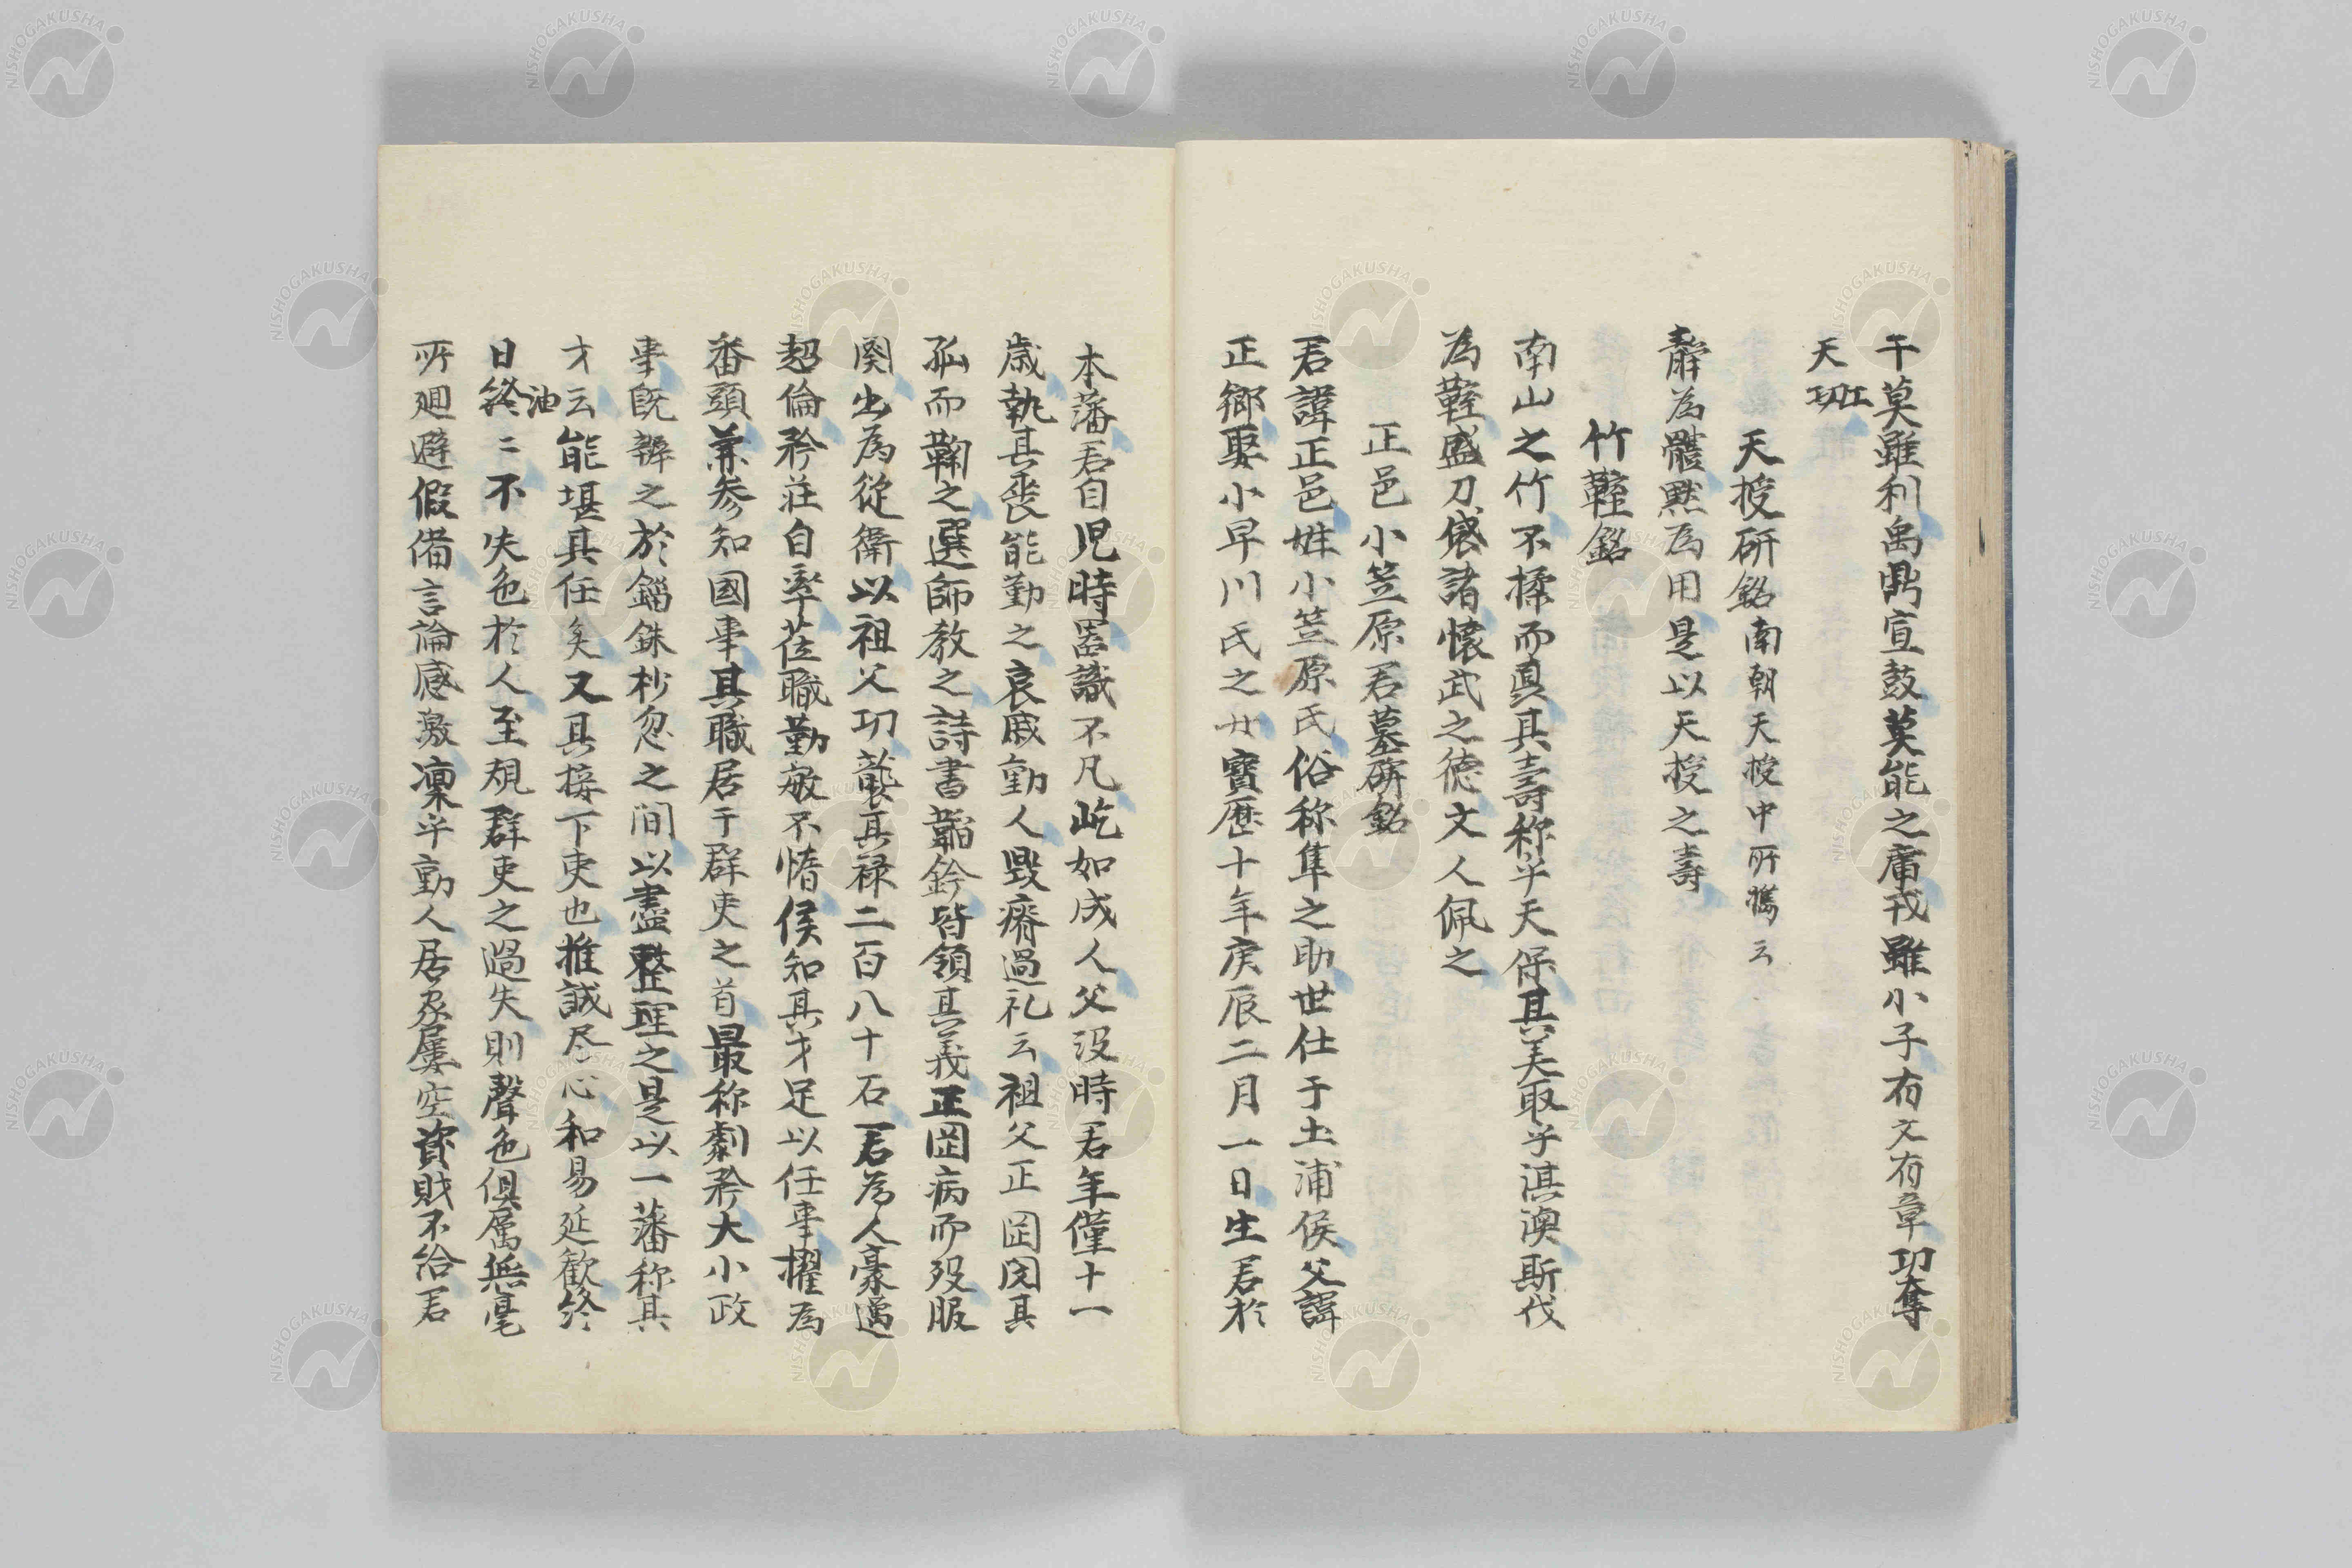 干莫雖利禹鼎宣鼓莫能之庸戎雖小子有文有章功奪
天工
天授研銘南朝天授中所獲云
靜為體黙為用是以天授之壽
竹鞘銘
南山之竹不揉而真其壽称乎天保其美取乎淇澳斯伐
為鞘盛刀傚諸懐武之徳文人佩之
正邑小笠原君墓碑銘
君諱正邑姓小笠原氏俗称隼之助世仕于土浦侯父諱
正郷娶小早川氏之女寶歴十年庚辰二月一日生君於
本藩君自児時器識不凡屹如成人父没時君年僅十一
歳執其喪能勤之哀戚動人毀瘠過礼云祖父正岡閔其
孤而鞠之選師教之詩書韜鈐皆領其義正岡病而歿服
闋出為從衛以祖父功襲其禄二百八十石君為人豪邁
超倫矜荘自率莅職勤敏不惰侯知其才足以任事擢為
番頭兼参知國事其職居于群吏之首最称劇矜大小政
事既辨之於錙銖杪忽之間以盡整理之是以一藩称其
才云能堪其任矣又其接下吏也推誠尽心和易延歓終
日油〻不失色於人至規群吏之過失則聲色倶厲無毫
所廻避假借言論感激凛乎動人居家屢空資財不給君
NISHOGAKUSHA